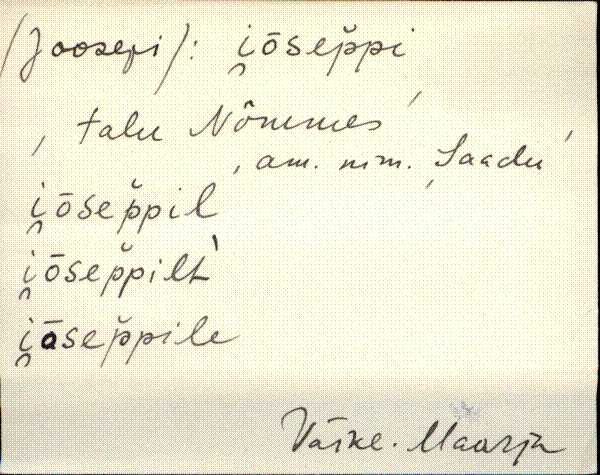 (Joosepi): i̯ōsep̆pi
‚ talu Nõmmes ’
, am. nim. ‚Saadu’
i̯ōsep̆pil
i̯ōsep̆pilt`
i̯ōsep̆pile
Väike-Maarja